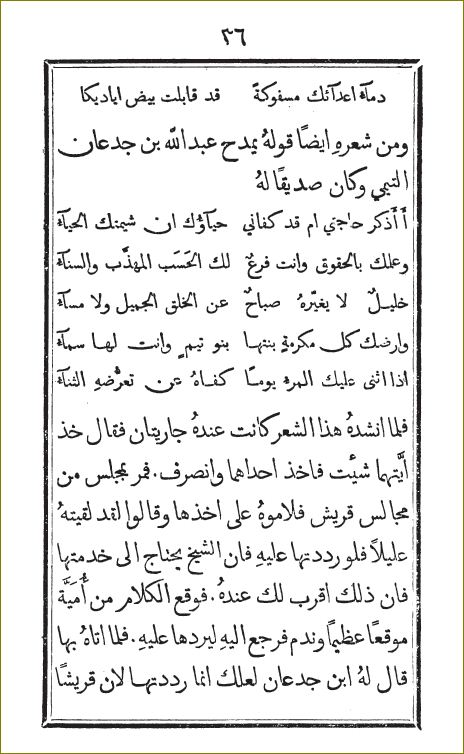 ٣٦
دمآءَ اعدآئك مسفوكةً قد قابلت بيض اياديكا
ومن شعرهِ ايضًا قولهُ يمدح عبد الله بن جدعان
التيمي وكان صديقًا لهُ
أَأَذكر حاجتي ام قد كفاني حيآؤك ان شيمتك الحيآءُ
وعلمك بالحقوق وانت فرعٌ لك الحَسَب المهذَّب والسنآءُ
خليلٌ لا يغيّرهُ صباحٌ عن الخلق الجميل ولا مسآءُ
وارضك كل مكرمةٍ بنتها بنو تيمٍ وانت لها سمآءُ
اذا اثنى عليك المرءُ يومًا كفاهُ عن تعرُّضهِ الثنآءُ
فلما انشدهُ هذا الشعر كانت عندهُ جاريتان فقال خذ
أَيَّتهما شئت فاخذ احداهما وانصرف. فمر بمجلس من
مجالس قريش فلاموهُ على اخذها وقالوا لقد لقيتهُ
عليلاً فلو رددتها عليهِ فان الشيخ يحتاج الى خدمتها
فان ذلك اقرب لك عندهُ. فوقع الكلام من أُميَّة
موقعًا عظيمًا وندم فرجع اليهِ ليردها عليهِ. فلما اتاهُ بها
قال لهُ ابن جدعان لعلك انما رددتها لان قريشًا